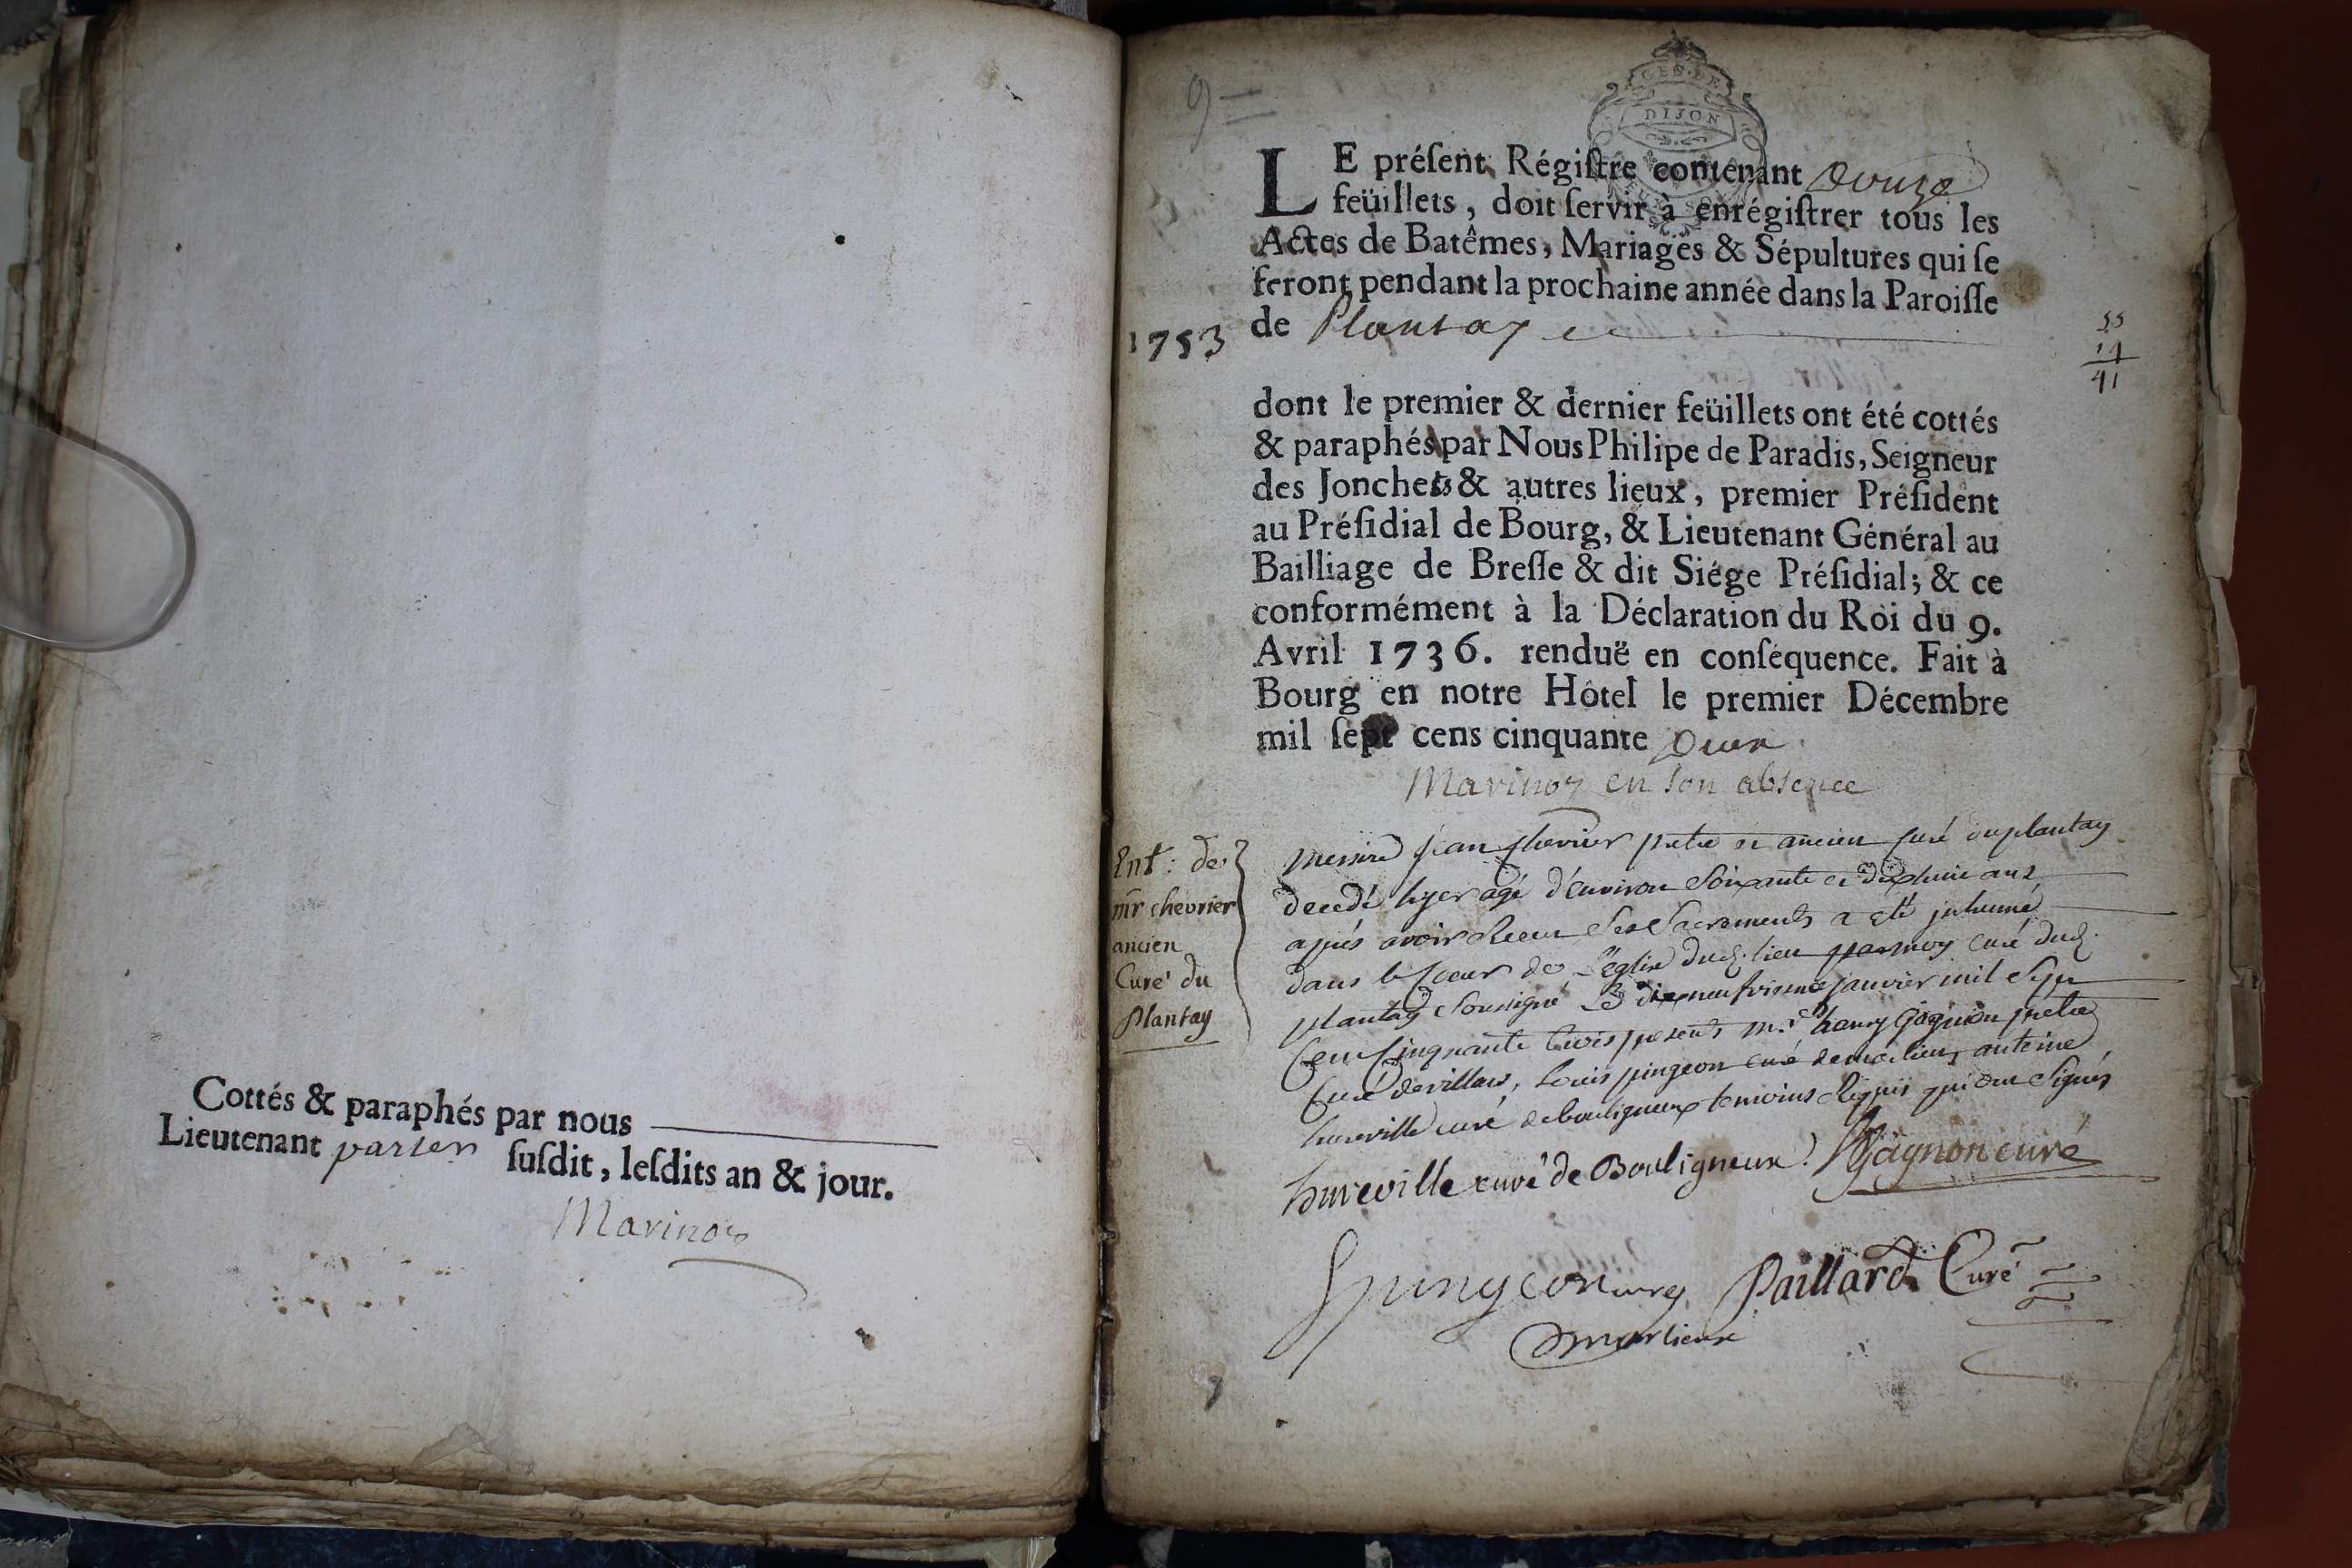 Cottés & paraphés par nous
Lieutenant parter susdit, lesdits an & jour.
Marinon
9
GEN. DE
DIJON
LE présent Régistre contenant Douze
feüillets, doit servir à enrégistrer tous les
Actes de Batêmes, Mariages & Sépultures qui se
feront pendant la prochaine année dans la Paroisse
1753
de Plantay
55
14
41
dont le premier & dernier feüillets ont été cottés
& paraphés par Nous Philipe de Paradis, Seigneur
des Jonchets & autres lieux, premier Président
au Présidial de Bourg, & Lieutenant Général au
Bailliage de Bresse & dit Siége Présidial; & ce
conformément à la Déclaration du Roi du 9.
Avril 1736. renduë en conséquence. Fait à
Bourg en notre Hôtel le premier Décembre
mil sept cens cinquante Deux
Marinon en son absence
Ent: de
mr chevrier
ancien
Curé du
Plantay
Messire jean chevrier pretre et ancien curé du plantay
decedé hyer agé d'environ soixante et dixhuit ans
aprés avoir receu ses sacrements a eté inhumé
dans le coeur de L'eglise dud. lieu par moy curé dud.
plantay soussigné Le dixneufvieme janvier mil sept
cent cinquante trois presents mr. henry Gagnion pretre
curé de villars, Louis pingeon curé de marlieux antoine
hureville curé de bouligneux temoins requis qui ont signés
hureville curé de Bouligneux. Gagnon curé
pingeon curé Paillard Curé
de marlieux